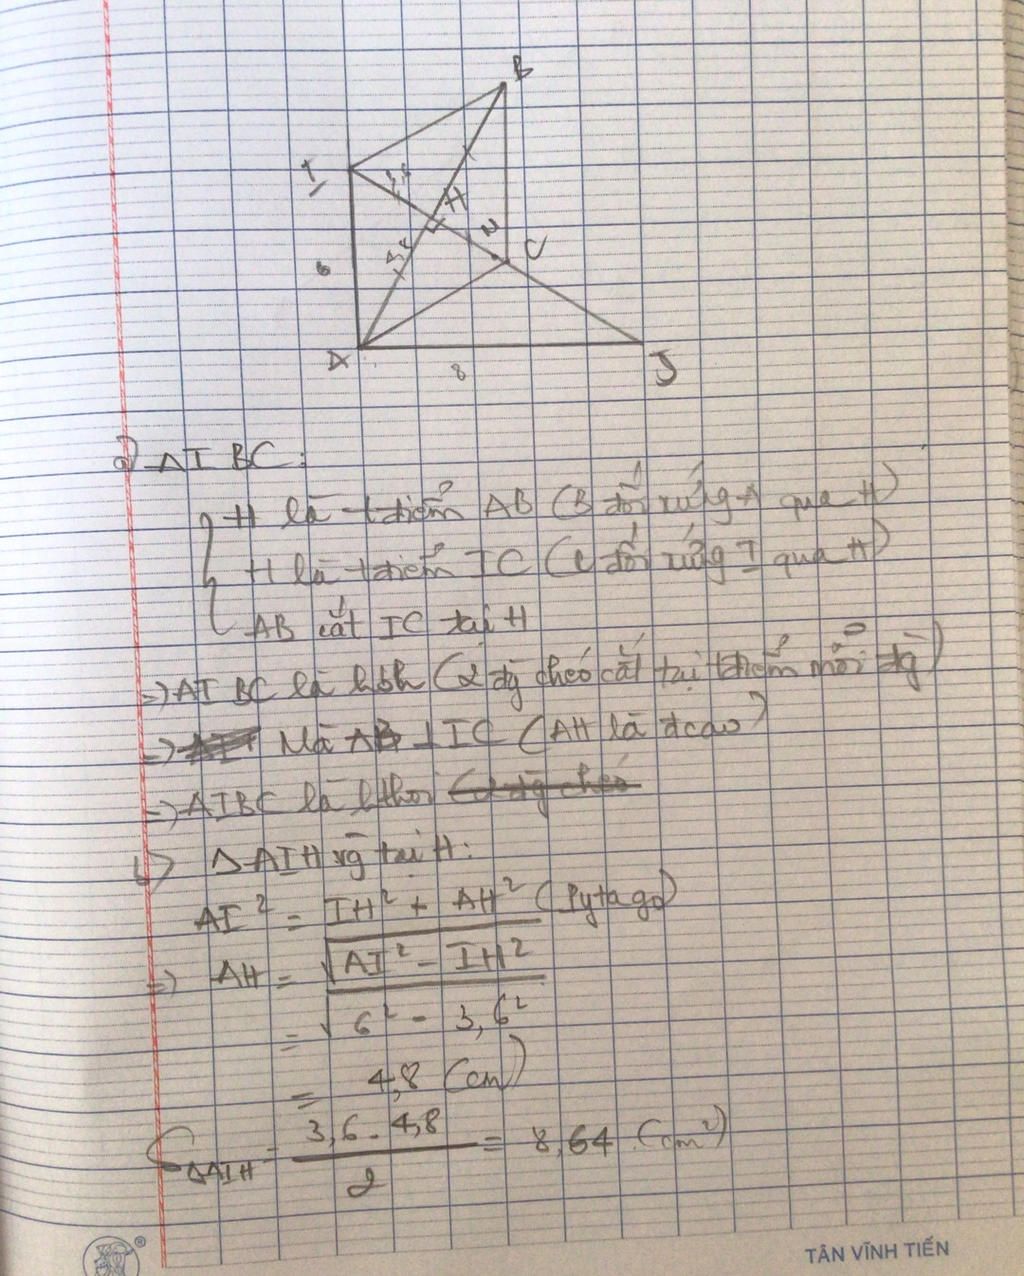 B
I
3,6
H
N
C
6
A
8
J
a) AIBC:
H là tđiểm AB (B đối xứng A qua H)
H là tđiểm IC (C đối xứng I qua H)
AB cắt IC tại H
=) AIBC là hbh (2 đg chéo cắt tại tđiểm mỗi đg)
=) Mà AB ⊥ IC (AH là đcao)
=) AIBC là hthoi
b) Δ AIH vg tại H:
AI² = IH² + AH² (Pytago)
=) AH = √AI² - IH²
= √6² - 3,6²
= 4,8 (cm)
SΔAIH = 3,6 . 4,8 / 2 = 8,64 (cm²)
®
TÂN VĨNH TIẾN